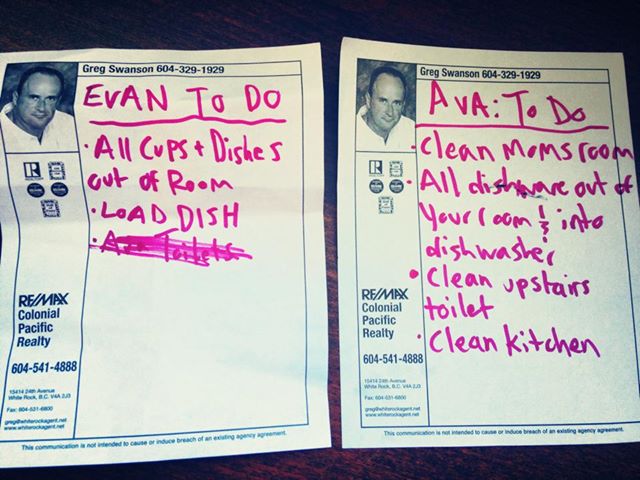 Greg Swanson 604-329-1929
EVAN TO DO
· All Cups + Dishes
out of Room
· LOAD DISH
RE/MAX
Colonial
Pacific
Realty
604-541-4888
15414 24th Avenue
White Rock, B.C. V4A 2J3
Fax: 604-531-6800
greg@whiterockagent.net
www.whiterockagent.net
This communication is not intended to cause or induce breach of an existing agency agreement.
Greg Swanson 604-329-1929
AVA: To Do
· Clean Moms room
· All dishware out of
Your room & into
dishwasher
· Clean upstairs
toilet
· Clean kitchen
RE/MAX
Colonial
Pacific
Realty
604-541-4888
15414 24th Avenue
White Rock, B.C. V4A 2J3
Fax: 604-531-6800
greg@whiterockagent.net
www.whiterockagent.net
This communication is not intended to cause or induce breach of an existing agency agreement.